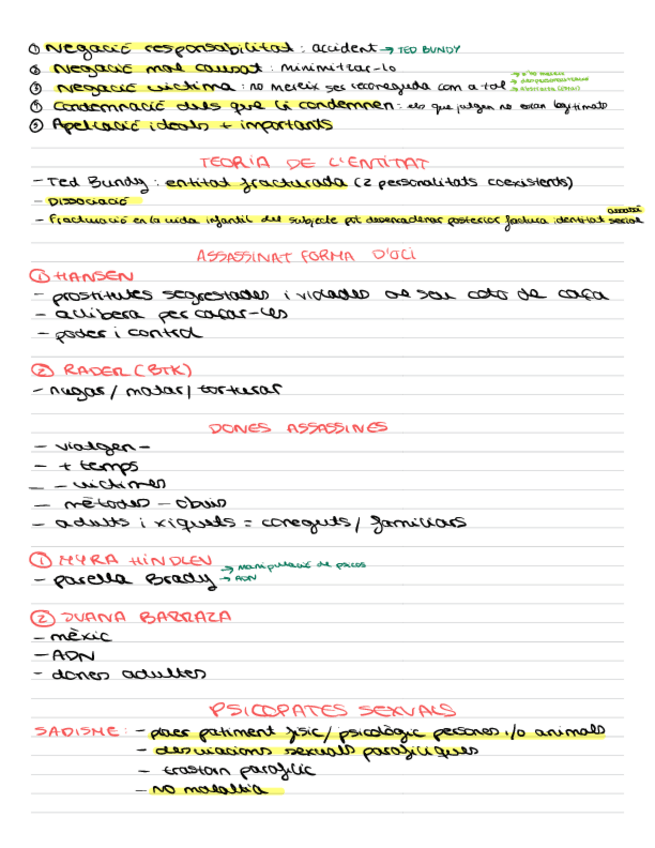 ① Negació responsabilitat: accident → TED BUNDY
② Negació mal causat: minimitzar-lo
③ Negació víctima: no mereix ser reconeguda com a tal
④ Condemnació dels que li condemnen: els que jutgen no estan legitimats
⑤ Apel·lació ideals + importants
TEORIA DE L'ENTITAT
- Ted Bundy: entitat fracturada (2 personalitats coexistents)
- Dissociació
- Fracturació en la vida infantil del subjecte pot desencadenar posterior factura identitat assassí serial
ASSASSINAT FORMA D'OCI
① HANSEN
- prostitutes segrestades i violades al seu coto de caça
- allibera per caçar-les
- poder i control
② RADER (BTK)
- nugar / matar / torturar
DONES ASSASSINES
- viatgen -
- + temps
- - víctimes
- mètodes - obvis
- adults i xiquets = coneguts / familiars
① MYRA HINDLEY
→ Manipulació de psicos
- parella Brady → ADN
② JUANA BARRAZA
- mèxic
- ADN
- dones adultes
PSICOPATES SEXUALS
SADISME: - plaer patiment físic/ psicològic persones i/o animals
- desviacions sexuals parafíliques
- trastorn parafílic
- no malaltia